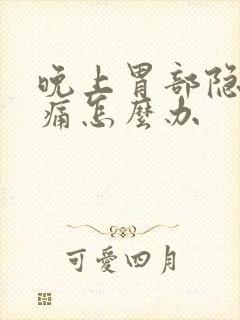 晚上胃部隐
痛怎麼办
可愛四月